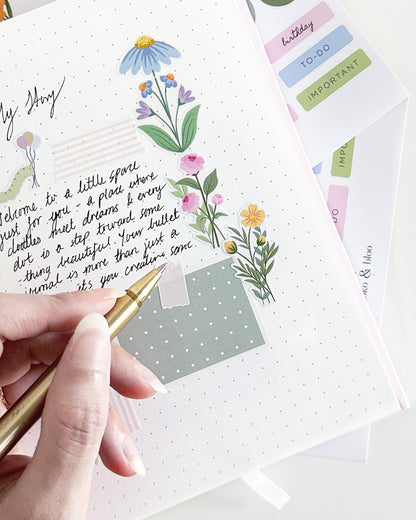 My Story
Welcome to a little space
just for you - a place where
doodles meet dreams & every
dot is a step toward some
-thing beautiful. Your bullet
journal is more than just a
it's you creating some
birthday
TO-DO
IMPORTANT
& bloo